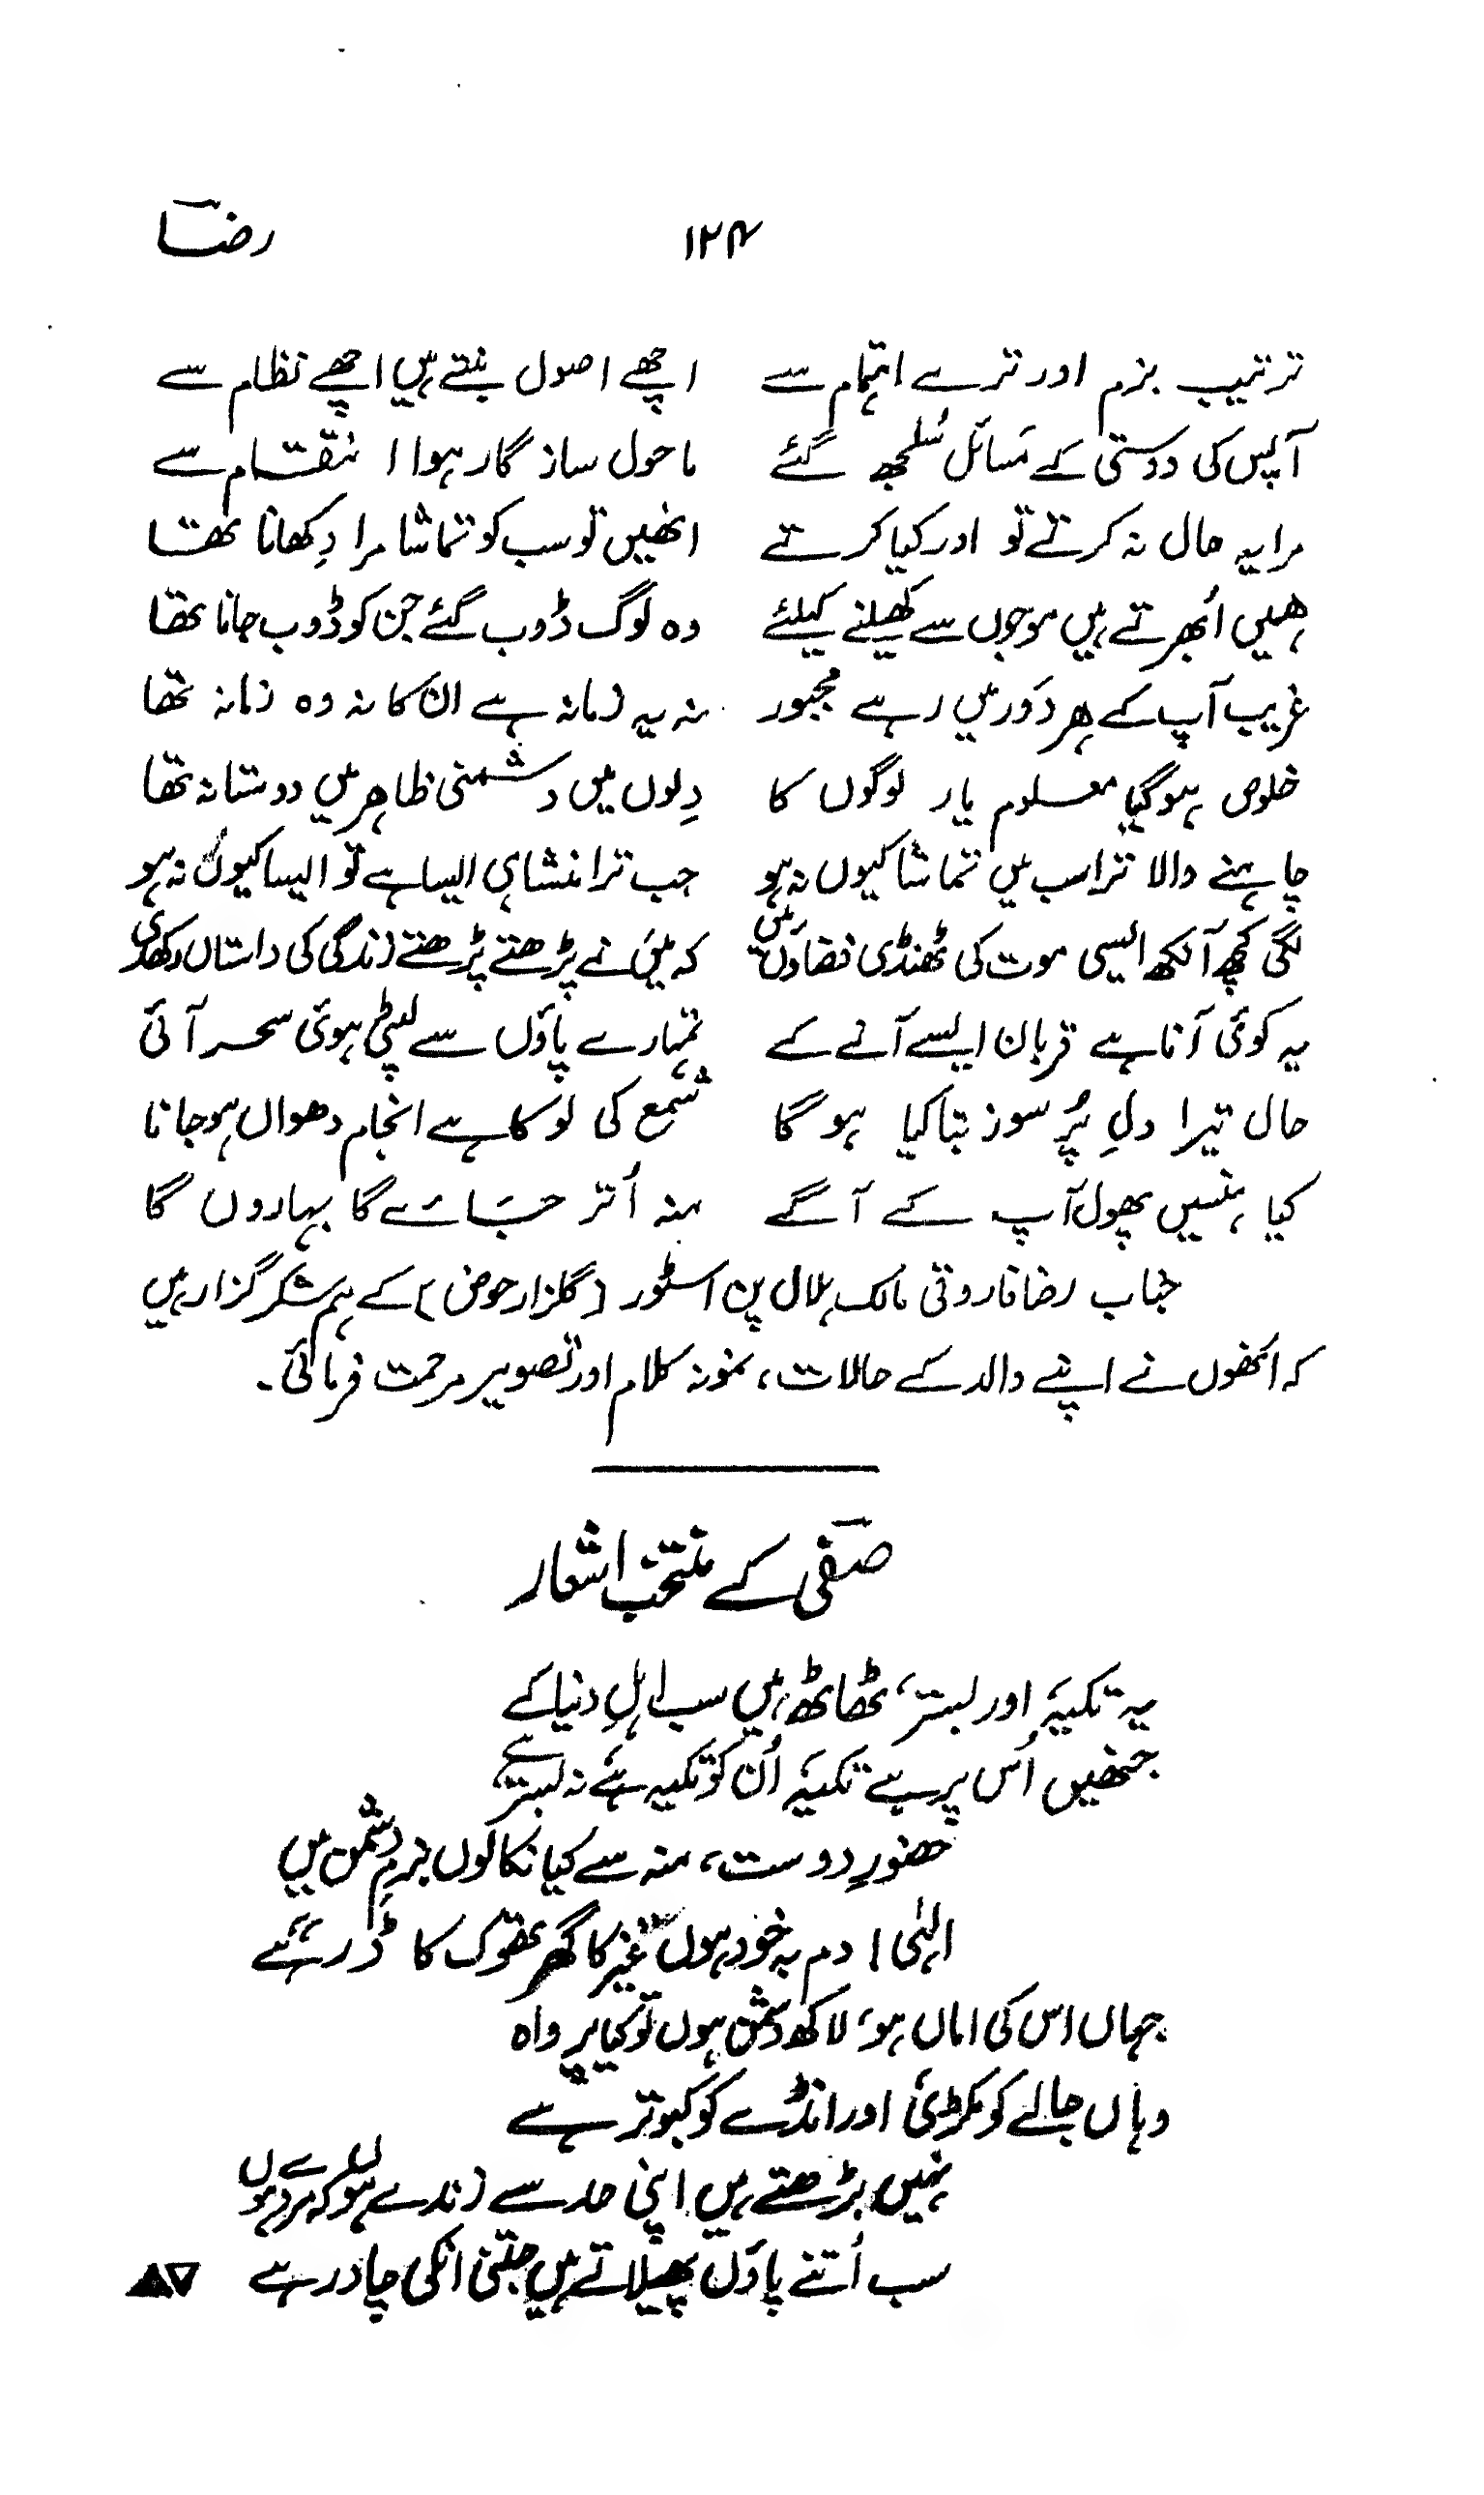 رضاؔ
۱۲۴
ترتیب بزم اور ترے اہتمام سے اچھے اصول بنتے ہیں اچھے نظام سے
آپس کی دوستی کے مَسائل سُلجھ گئے ماحول ساز گار ہوا انتقام سے
مرا یہ حال نہ کرتے تو اور کیا کرتے انھیں تو سب کو تماشا مرا دِکھانا تھا
ہمیں اُبھرتے ہیں موجوں سے کھیلنے کیلئے وہ لوگ ڈوب گئے جن کو ڈوب جانا تھا
غریب آپ کے ہر دَور میں رہے مجبور نہ یہ زمانہ ہے ان کا نہ وہ زمانہ تھا
خلوص ہو گیا معلوم یار لوگوں کا دِلوں میں دشمنی ظاہر میں دوستانہ تھا
چاہنے والا ترا سب میں تماشا کیوں نہ ہو جب ترا منشا ہی ایسا ہے تو ایسا کیوں نہ ہو
لگی کچھ آنکھ ایسی موت کی ٹھنڈی فضاؤں میں کہ میں نے پڑھتے پڑھتے زندگی کی داستاں رکھدی
یہ کوئی آنا ہے قربان ایسے آنے کے تمہارے پاؤں سے لپٹی ہوئی سحر آئی
حال تیرا دلِ پُر سوز بتا کیا ہو گا شمع کی لو کا ہے انجام دھواں ہو جانا
کیا ہنسیں پھول آپ کے آگے منہ اُتر جَائے گا بہاروں گا
جناب رضا فاروقی مالک ہلال پن اسٹور (گلزار حوض) کے ہم شکر گزار ہیں
کہ اُنھوں نے اپنے والد کے حالات، نمونہ کلام اور تصویر مرحمت فرمائی۔
صفیؔ کے منتخب اشعار
یہ تکیہ اور بستر، ٹھاٹھ ہیں سب اہلِ دنیا کے
جنھیں اُس پر ہے تکیہ اُن کو تکیہ ہے نہ بستر ہے
حضورِ دوست، منہ سے کیا نکالوں بزمِ دشمن میں
الٰہی! دم بہ خود ہوں غیر کا گھر تھوک کا ڈر ہے
جہاں اس کی اماں ہو، لاکھ دشمن ہوں تو کیا پرواہ
وہاں جالے کو مکڑی اور انڈے کو کبوتر ہے
نہیں بڑھتے ہیں اپنی حد سے زندے ہوں کہ مردے ہوں
سب اُتنے پاؤں پھیلاتے ہیں جتنی انکی چادر ہے